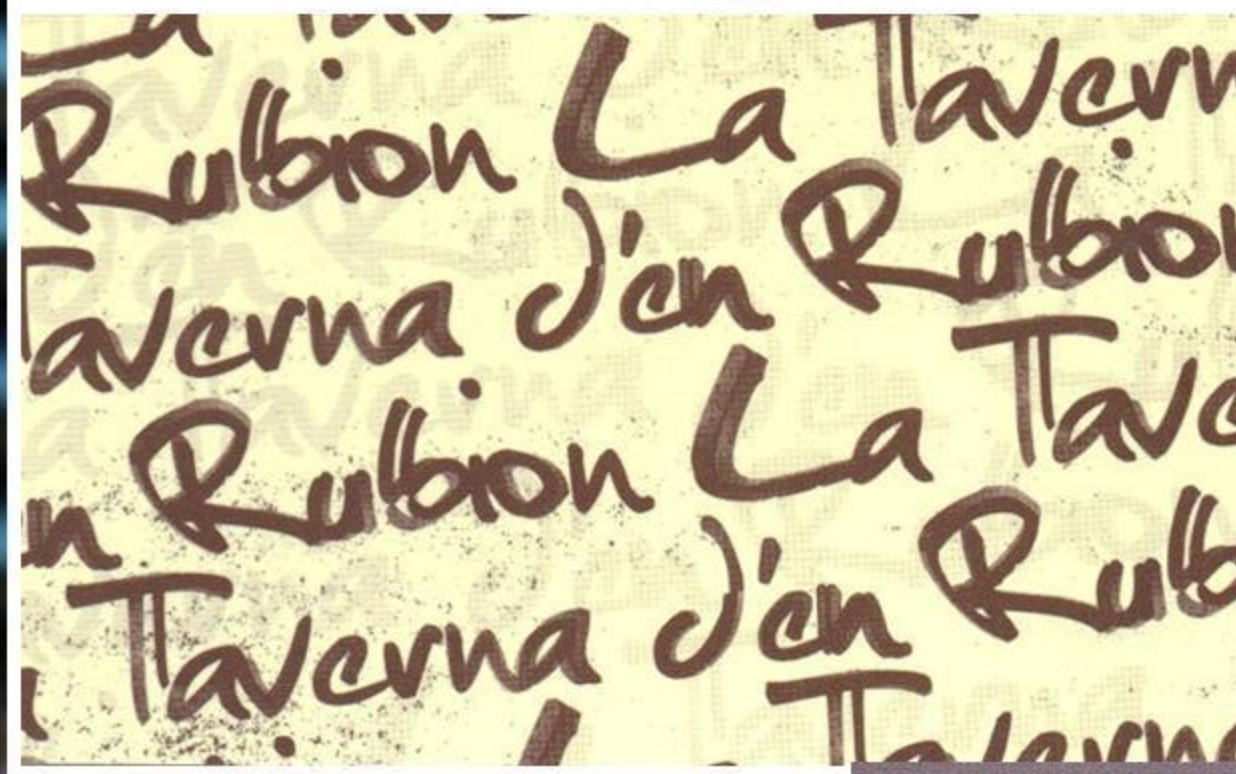 La
Rubion La Tavern
Taverna d'en Rubion
n Rubion La Tave
Taverna d'en Rub
Taverna